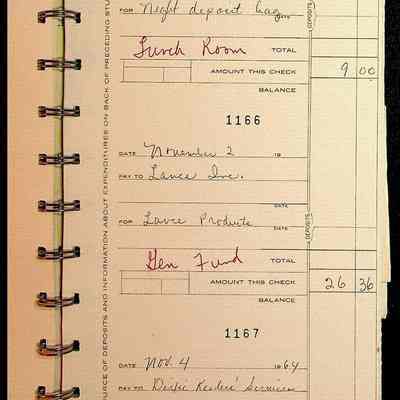 FOR Night deposit bag DATE
Lunch Room TOTAL
AMOUNT THIS CHECK 9 00
BALANCE
1166
DATE November 2 19
PAY TO Lance Inc.
DATE
FOR Lance Products
DATE
Gen Fund TOTAL
AMOUNT THIS CHECK 26 36
BALANCE
1167
DATE Nov. 4 1964
PAY TO Service
DEPOSITS
DEPOSITS
URCE OF DEPOSITS AND INFORMATION ABOUT EXPENDITURES ON BACK OF PRECEDING STU